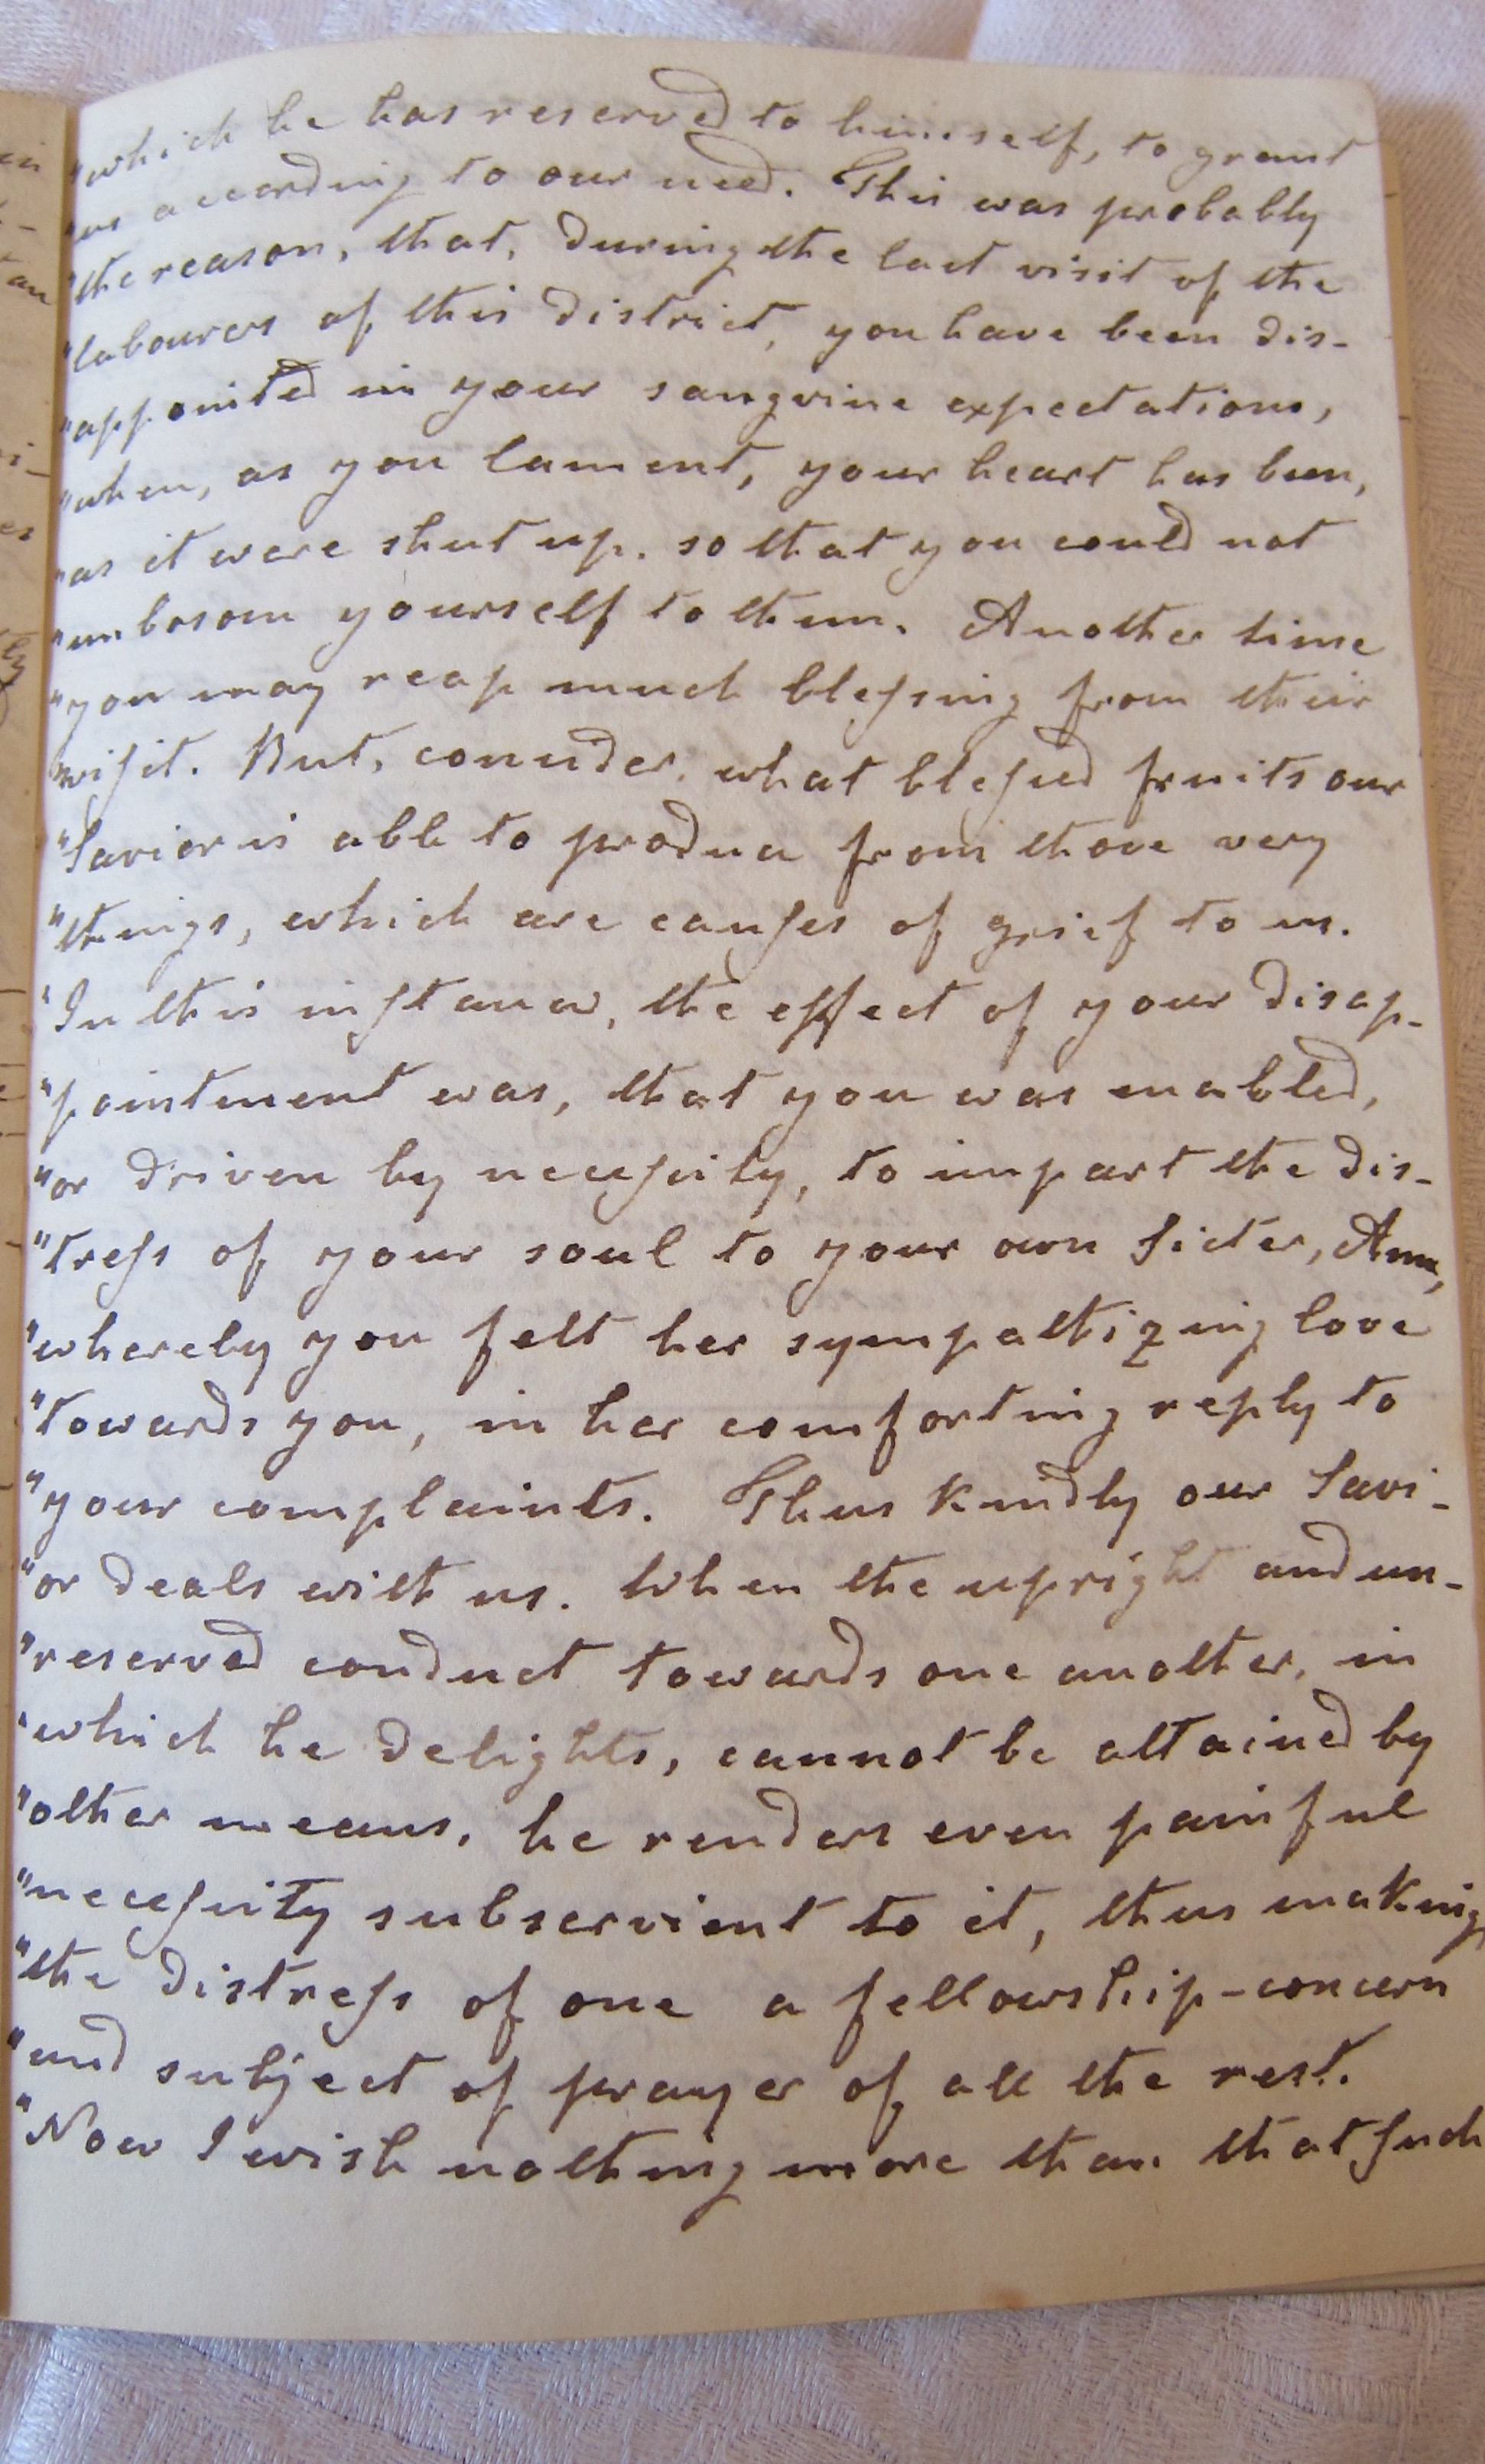 "which he has reserved to himself, to grant
"us according to our need. This was probably
"the reason, that, during the last visit of the
"labourers of this district, you have been dis-
"appointed in your sanguine expectations,
"when, as you lament, your heart has been,
"as it were shut up, so that you could not
"unbosom yourself to them. Another time
"you may reap much bleſsing from their
"viſit. But, consider, what bleſsed fruits our
"Savior is able to produce from those very
"things, which are cauſes of grief to us.
"In this inſtance, the effect of your disap-
"pointment was, that you was enabled,
"or driven by neceſsity, to impart the dis-
"treſs of your soul to your own Sister, Ann,
"whereby you felt her sympathizing love
"towards you, in her comforting reply to
"your complaints. Thus kindly our Savi-
"or deals with us. When the upright and un-
"reserved conduct towards one another, in
"which he delights, cannot be attained by
"other means, he renders even painful
"neceſsity subservient to it, thus making
"the distreſs of one a fellowship-concern
"and subject of prayer of all the rest.
"Now I wish nothing more than that ſuch